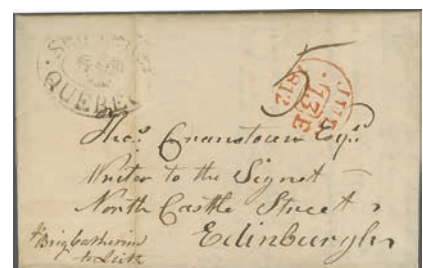 QUEBEC
5
JY
1812
Thos. Cranstown Esqr.
Writer to the Signet
North Castle Street
Edinburgh
pr Brig Catherine
to Leith